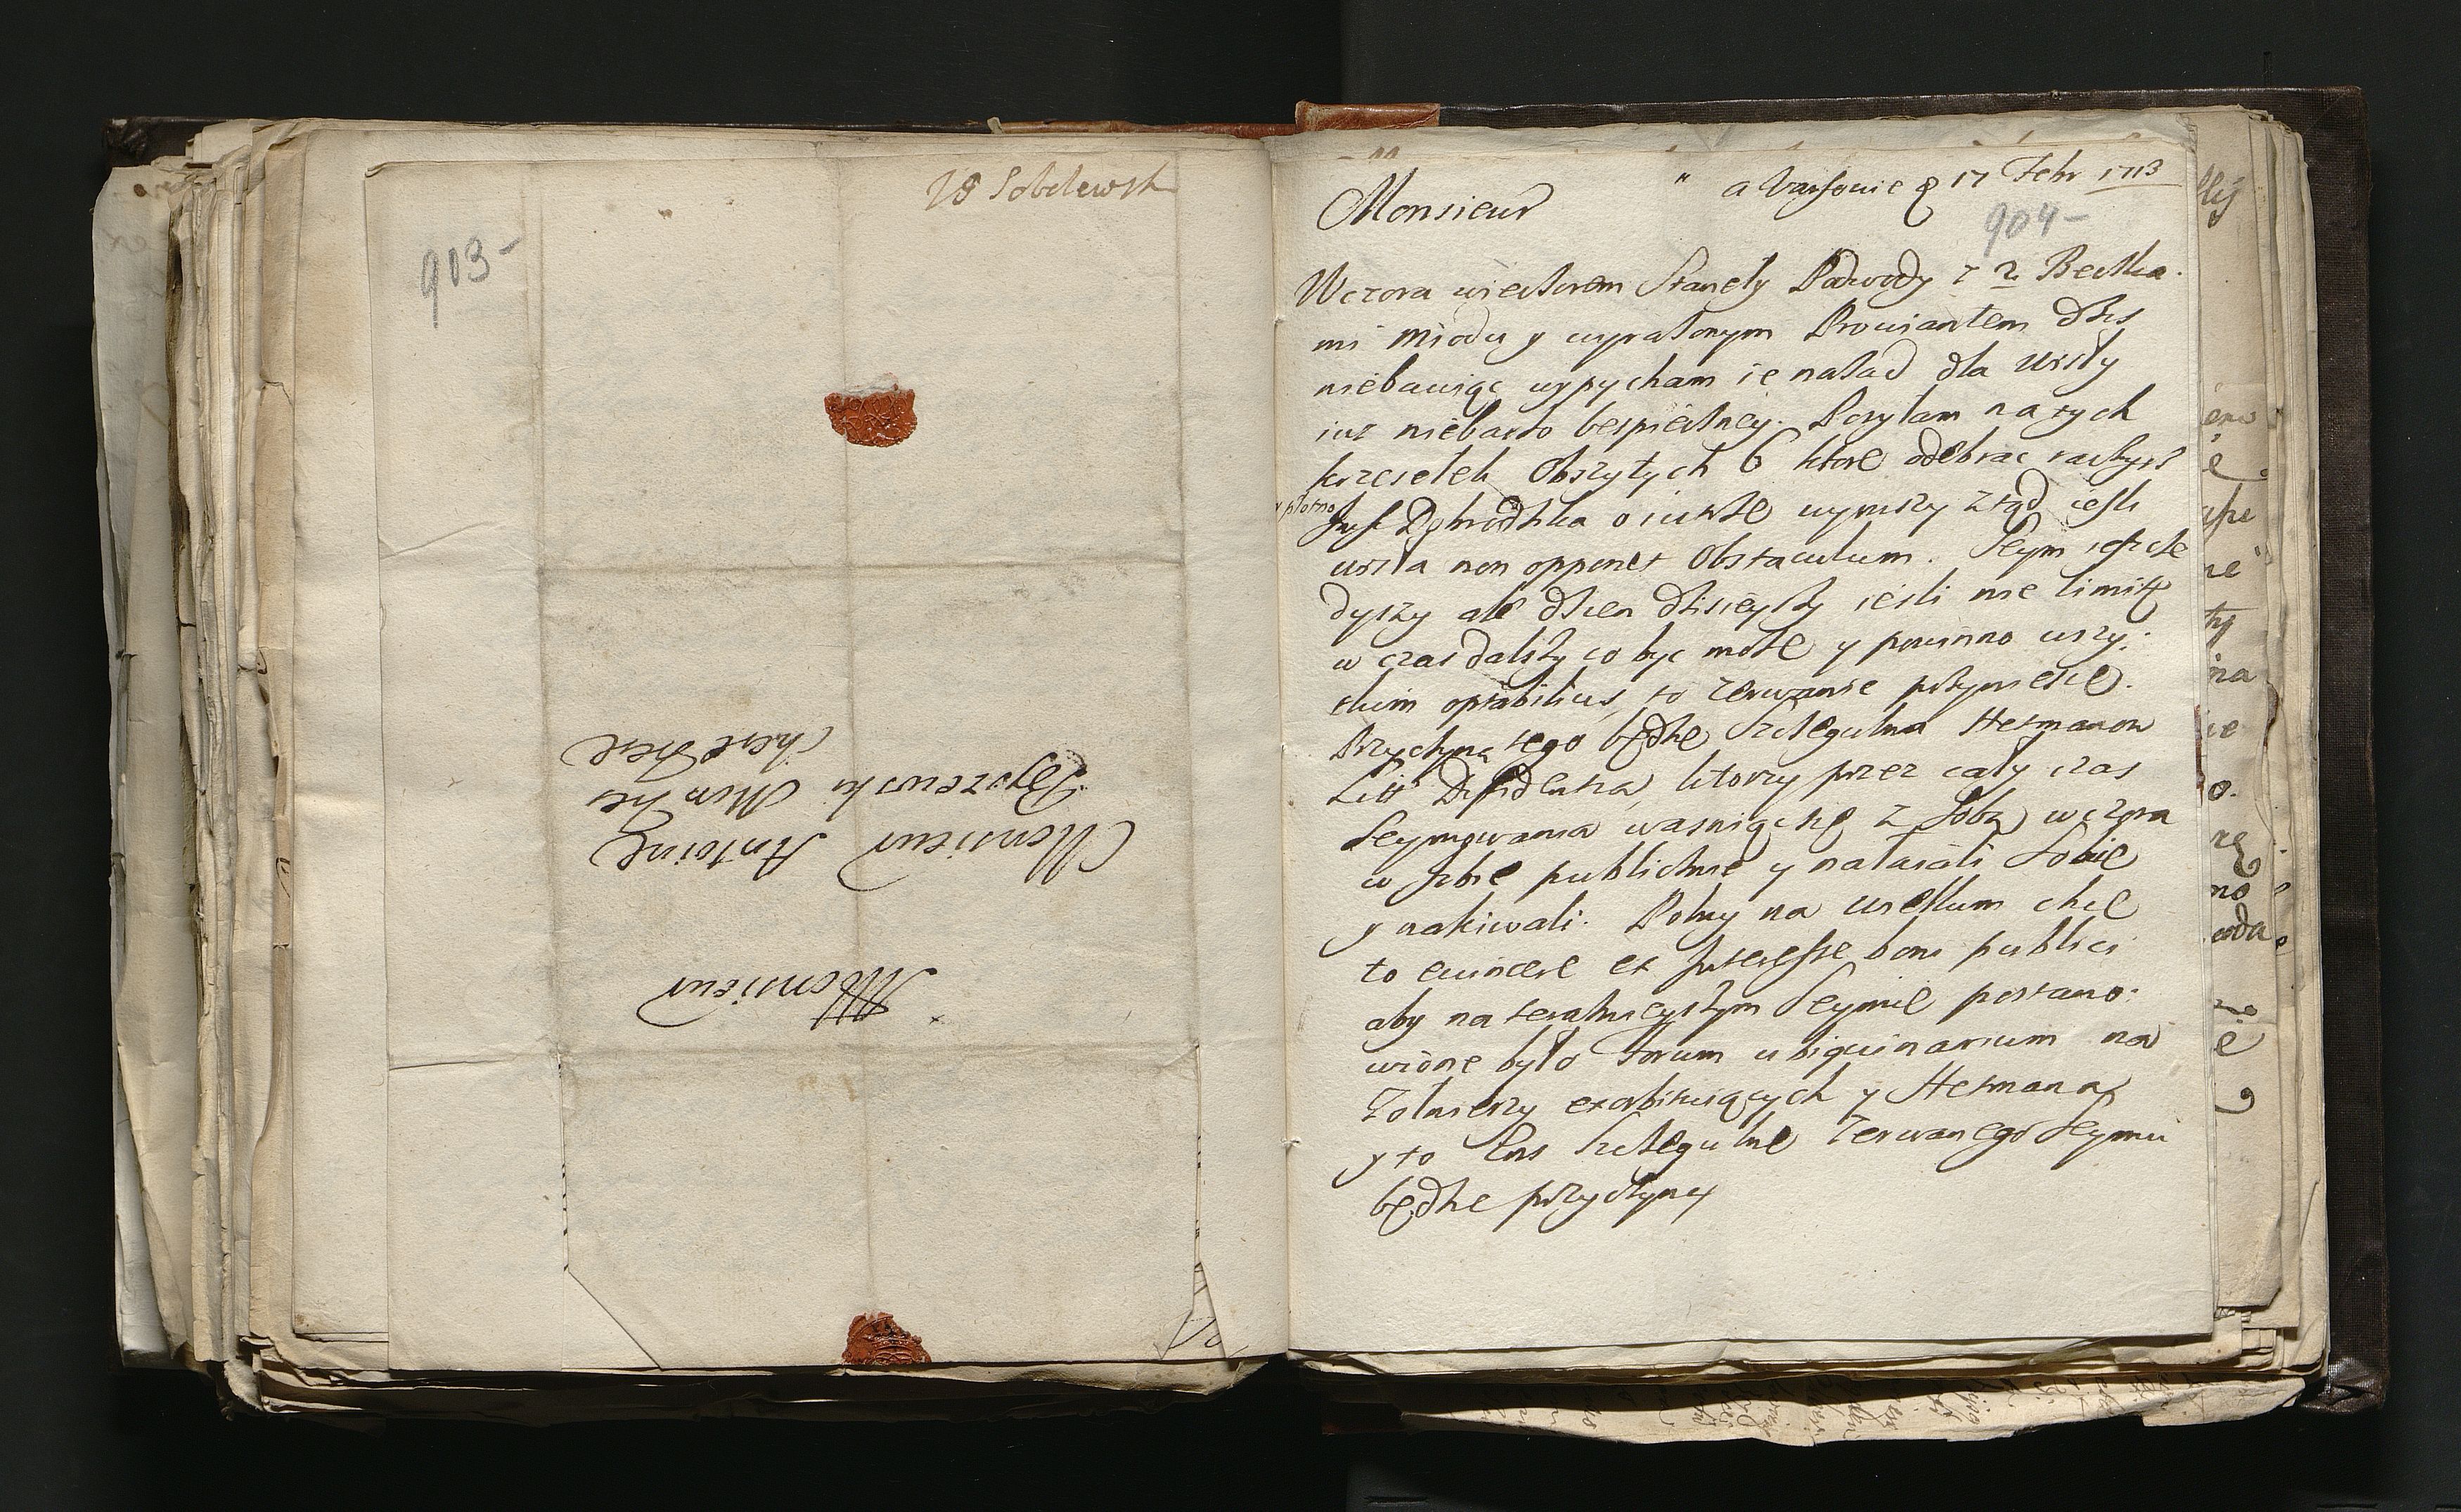 18 Sobolewsk
913-
Monsieur
Monsieur Antoine
Mon tres
chere frere
a Varsovie 17 Febr 1713
Monsieur
904-
Wczora wieczorem stanęły Podwody z 2 Beczka
mi miodu y wyrażonym Prowiantem dzis
niebawiąc wypycham ie nazad dla wisły
iuz niebarzo bespieczney. Posyłam na tych
krzesełek obszytych 6 ktore odebrac racżysz
y płotno
Dobrodzika o iutrze wymszy ztąd iesli
wisła non opponet obstaculum. Seym ieszcze
dyszy ale dzien dzisieyszy iesli nie limitę
w czas dalszy co byc moze y powinno wszy:
stkim optabilius, to zerwanie przyniesie.
Przyczyną tego będzie szczegulna Hetmanow
Litt ktorzy przez cały czas
Seymowania wasniąc się z sobą wczora
w Izbie publicznie y nałaiali sobie
y nakiwali. Polny na wielkim chce
to evincere ex Interesse boni publici
aby na teraznieyszym Seymie postano:
wione było forum ubiquinarium na
Zołnierzy exorbituiących y Hetmana,
y to szczegulne zerwanego Seymu
będzie przyczyną